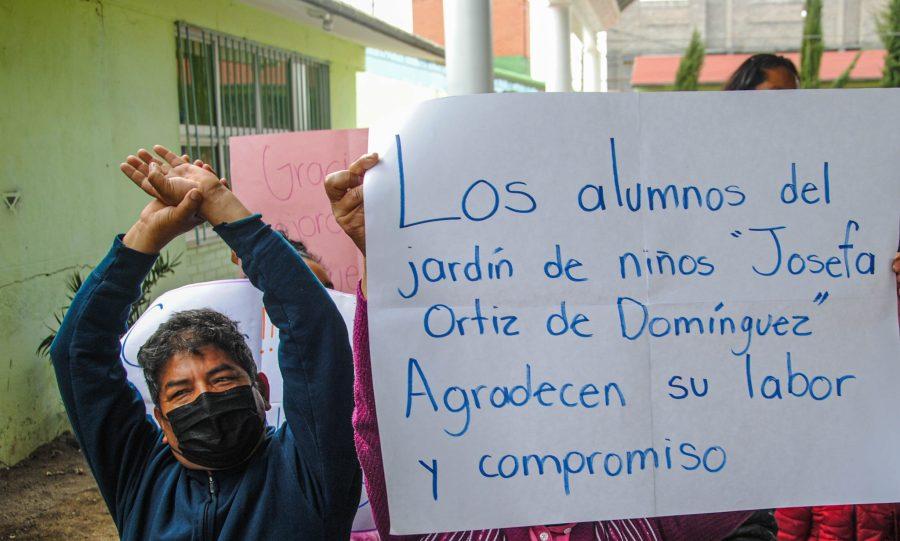 Gracias
Los alumnos del
jardín de niños "Josefa
Ortiz de Domínguez"
Agradecen su labor
y compromiso